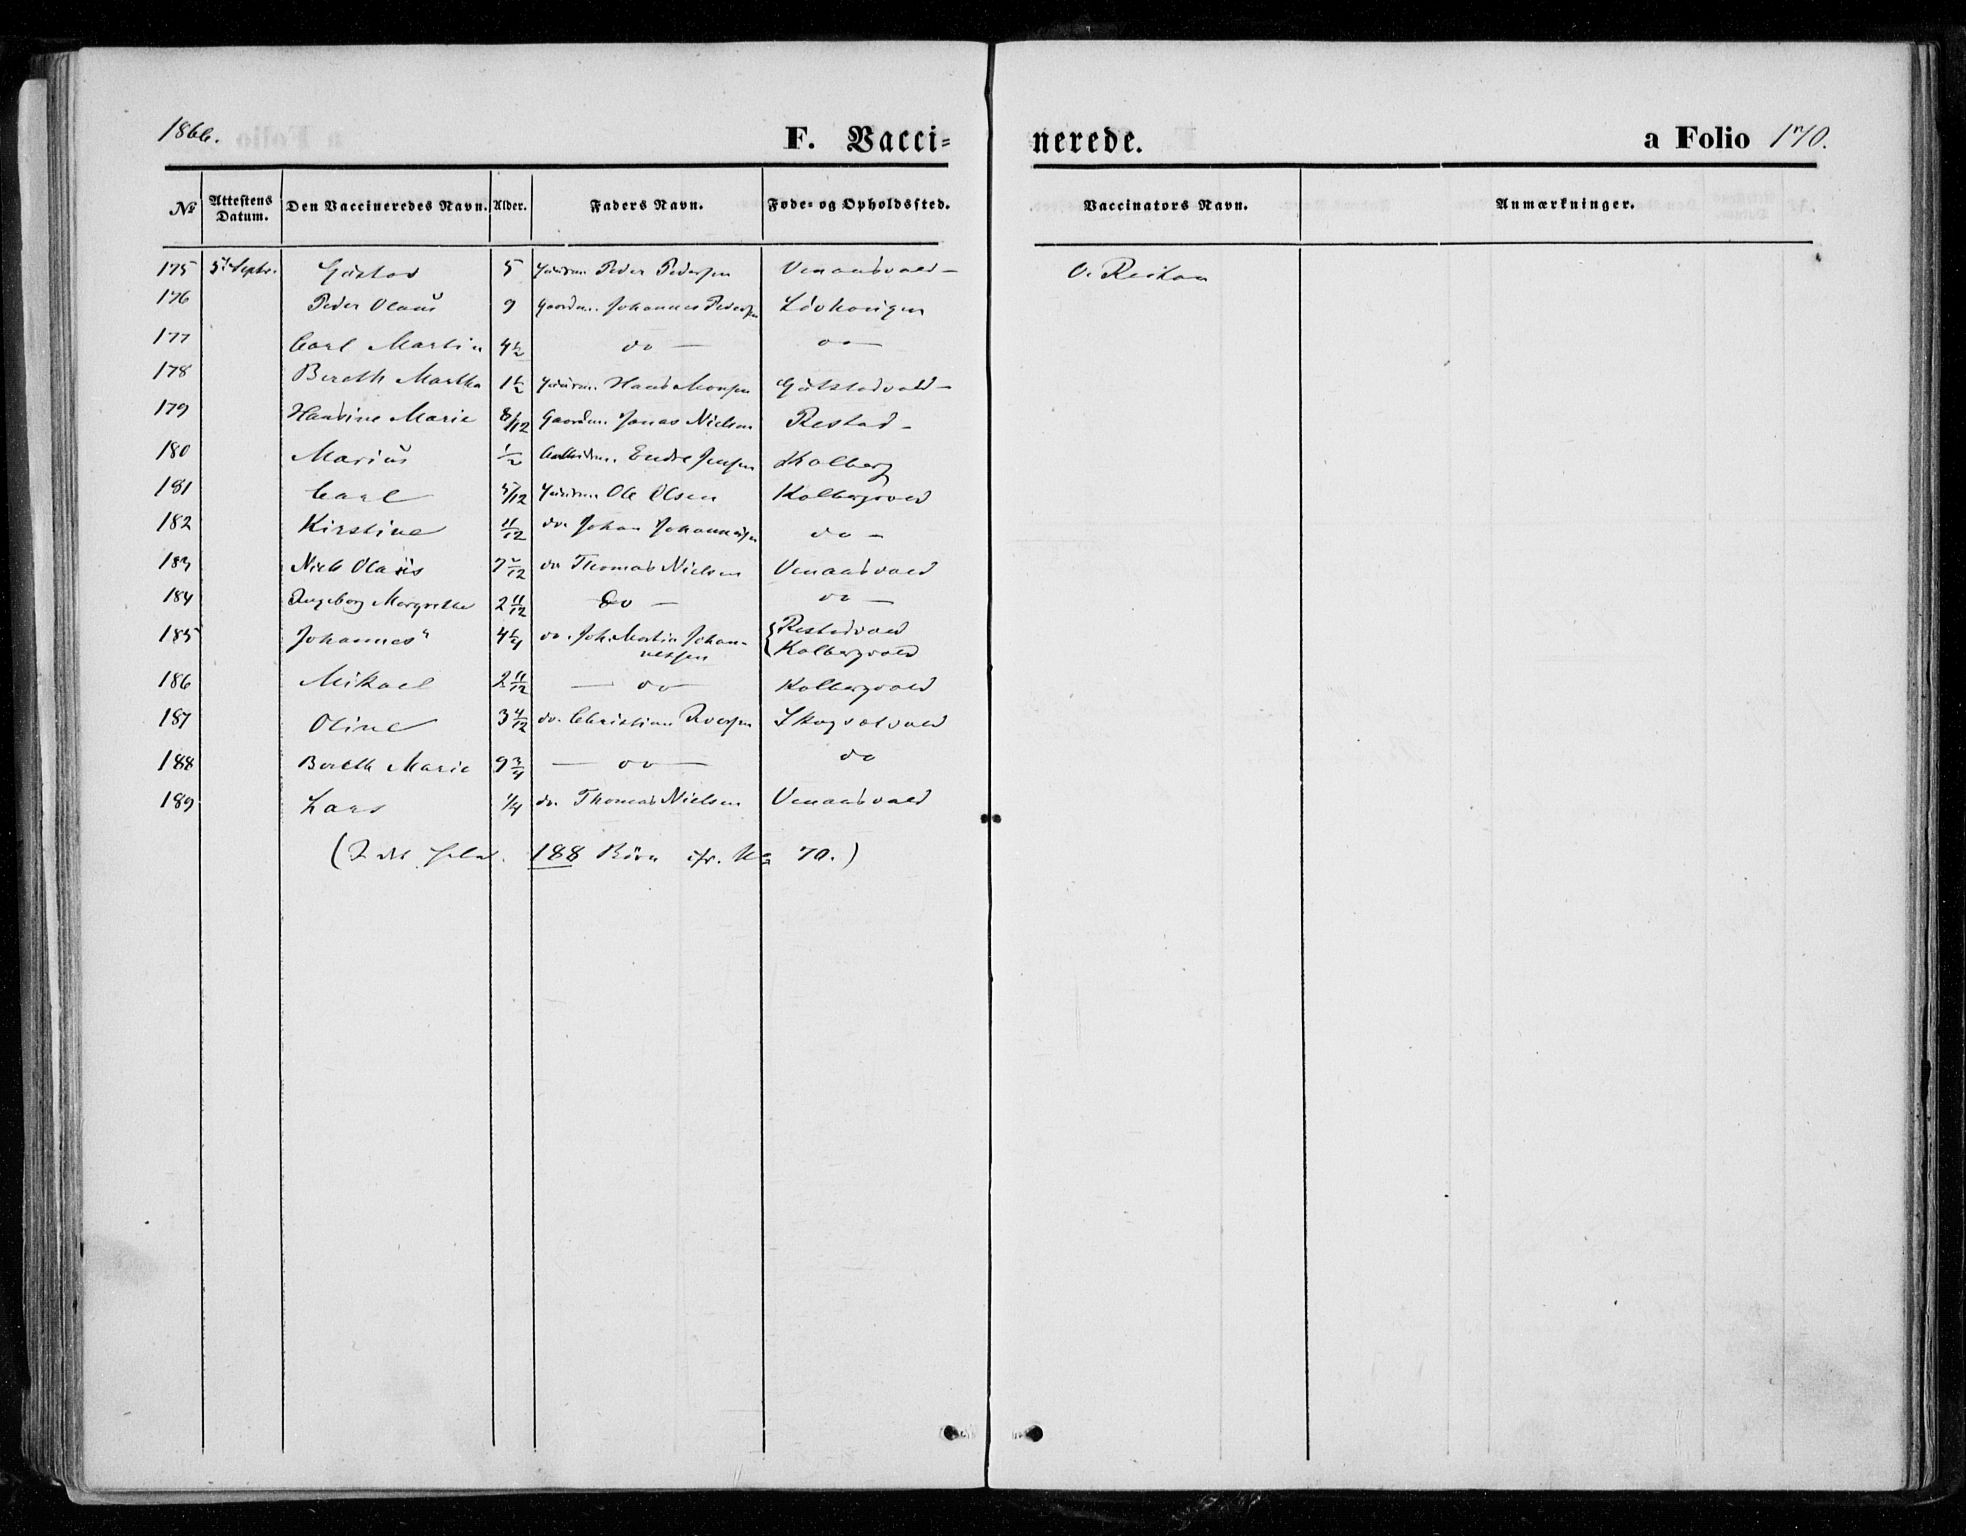 1866. F. Vacci= nerede. a Folio 170.
No Attestens Datum. Den Vaccineredes Navn. Alder. Faders Navn. Føde= og Opholdssted. Vaccinators Navn. Anmærkninger.
175 5 Septr. Gustav 5 Peder Pedersen Venaasvald - O. Reitan
176 Peder Olaus 9 Gaardm. Johannes Pedersen
177 Carl Martin 4½ do — do —
178 Bereth Martha 1½ Hans Monsen
179 Hansine Marie 8/12 Gaardm. Jonas Nielsen Restad -
180 Marius ½ Endre Jensen Kolberg
181 Carl 5/12 Ole Olsen Kolbergvald
182 Kirstine 11/12 do. Johan Johannesen do -
183 Niels Olaus 7 2/12 do Thomas Nielsen Venaasvald
184 Ingeborg Margrethe 2 11/12 Do — do —
185 Johannes 4¼ do. Joh. Martin Johan- Restadvald
nessen Kolbergvald
186 Mikael 2 11/12 — do — Kolbergvald
187 Oline 3 4/12 do. Christian Iversen
188 Bereth Marie 9¾ — do — do
189 Lars ¼ do. Thomas Nielsen Venaasvald
(I det hele 188 Børn cfr. No 70.)